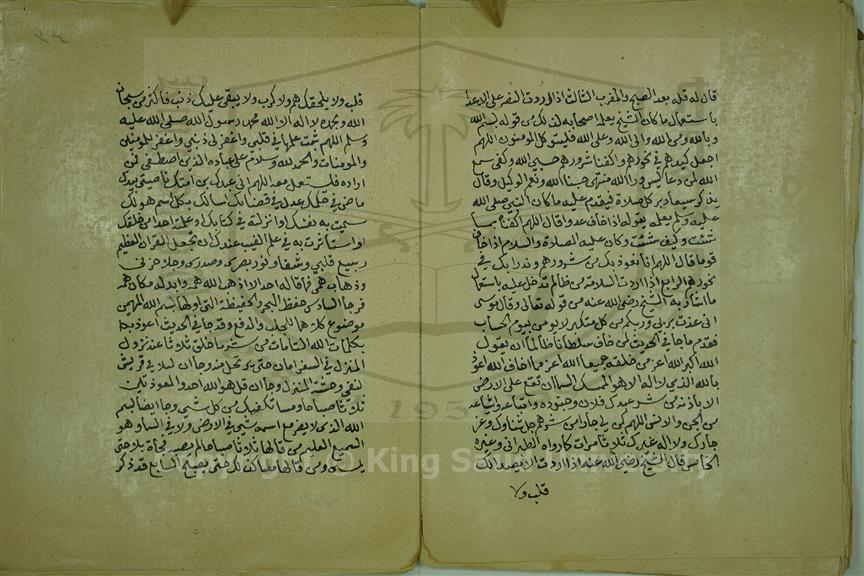 قال له قله بعد الصبح والمغرب الثالث اذا اردت النصر على الاعدا
باستعمال ما كان الشيخ يعلمه اصحابه لذلك من قوله بسم الله
وبالله ومن الله والى الله وعلى الله فليتوكل المومنون اللهم
اجعل كيدهم في نحورهم واكفنا شرورهم حسبي الله وكفى سمع
الله لمن دعا ليس ورا الله منتهى حسبنا الله ونعم الوكيل وقال
دبر كل صلاة ما كان النبي صلى الله
عليه وسلم يعلمه بقوله اذا خاف عدوا قال اللهم اكفنا بما
شئت وكيف شئت وكان عليه الصلاة والسلام اذا خاف
قوما قال اللهم انا نعوذ بك من شرورهم وندرا بك في
نحورهم الرابع اذا اردت السلامة من ظالم تدخل عليه باستعمال
الشيخ رضي الله عنه من قوله تعالى وقال موسى
اني عذت بربي وربكم من كل متكبر لا يومن بيوم الحساب
فقد ما جا في الحديث من خاف سلطانا ظالما ان يقول
الله اكبر الله اعز من خلقه جميعا الله اعز مما اخاف الله اعوذ
بالله الذي لا اله الا هو الممسك السما ان تقع على الارض
الا باذنه من شر عبدك فلان وجنوده واتباعه واشياعه
من الجن والانس اللهم كن لي جارا من شرهم جل ثناوك وعز
جارك ولا اله غيرك ثلاث مرات كما رواه الطبراني وغيره
الخامس قال الشيخ رضي الله عنه اذا اردت ان لا يصدا لك
قلب ولا
قلب ولا يلحقك هم ولا كرب ولا يبقى عليك ذنب فاكثر من سبحان
الله وبحمده لا اله الا الله محمد رسول الله صلى الله عليه
وسلم اللهم ثبت علمها في قلبي واغفر لي ذنبي واغفر للمومنين
والمومنات والحمد لله وسلام على عباده الذين اصطفى فمن
اراده معه اللهم اني عبدك بن امتك ناصيتي بيدك
ماض في حكمك عدل في قضاءك اسالك بكل اسم هو لك
سميت به نفسك او انزلته في كتابك او علمته احدا من خلقك
او استاثرت به في علم الغيب عندك ان تجعل القران العظيم
ربيع قلبي وشفا ونور بصري وصدري وجلا حزني
وذهاب همي فما قاله احد الا اذهب الله همه وابدله مكان همه
فرجا السادس حفظ البحر والحفيظة التي اولها بسم الله المهيمن
موضوع للجلب والدفع وقد جا في الحديث اعوذ
بكلمات الله التامات من شر ما خلق ثلاثا عند نزول
المنزل في السفر امان حتى يرتحل منه وجا ان لايلاف قريش
لنفي وحشة المنزل وجا ان قل هو الله احد والمعوذتين
ثلاثا صباحا ومسا تكفيك من كل شي وجا ايضا بسم
الله الذي لا يضر مع اسمه شي في الارض ولا في السما وهو
السميع العليم من قالها ثلاثا صباحا لم يصبه فجاة بلا حتى
يمسي ومن قالها مسا كذلك حتى يصبح السابع قد ذكر